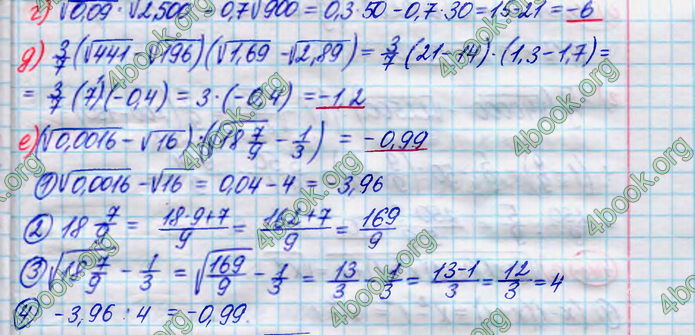 г) √0,09 · √2,500 - 0,7√900 = 0,3·50 - 0,7·30 = 15-21 = -6
д) 3/7 (√441 - √196)(√1,69 - √2,89) = 3/7 (21-14)·(1,3-1,7) =
= 3/7 (7)(-0,4) = 3·(-0,4) = -1,2
е) (√0,0016 - √16) : (√18 7/9 - 1/3) = -0,99
① √0,0016 - √16 = 0,04 - 4 = -3,96
② 18 7/9 = (18·9+7)/9 = (162+7)/9 = 169/9
③ √18 7/9 - 1/3 = √169/9 - 1/3 = 13/3 - 1/3 = (13-1)/3 = 12/3 = 4
④ -3,96 : 4 = -0,99.
4book.org